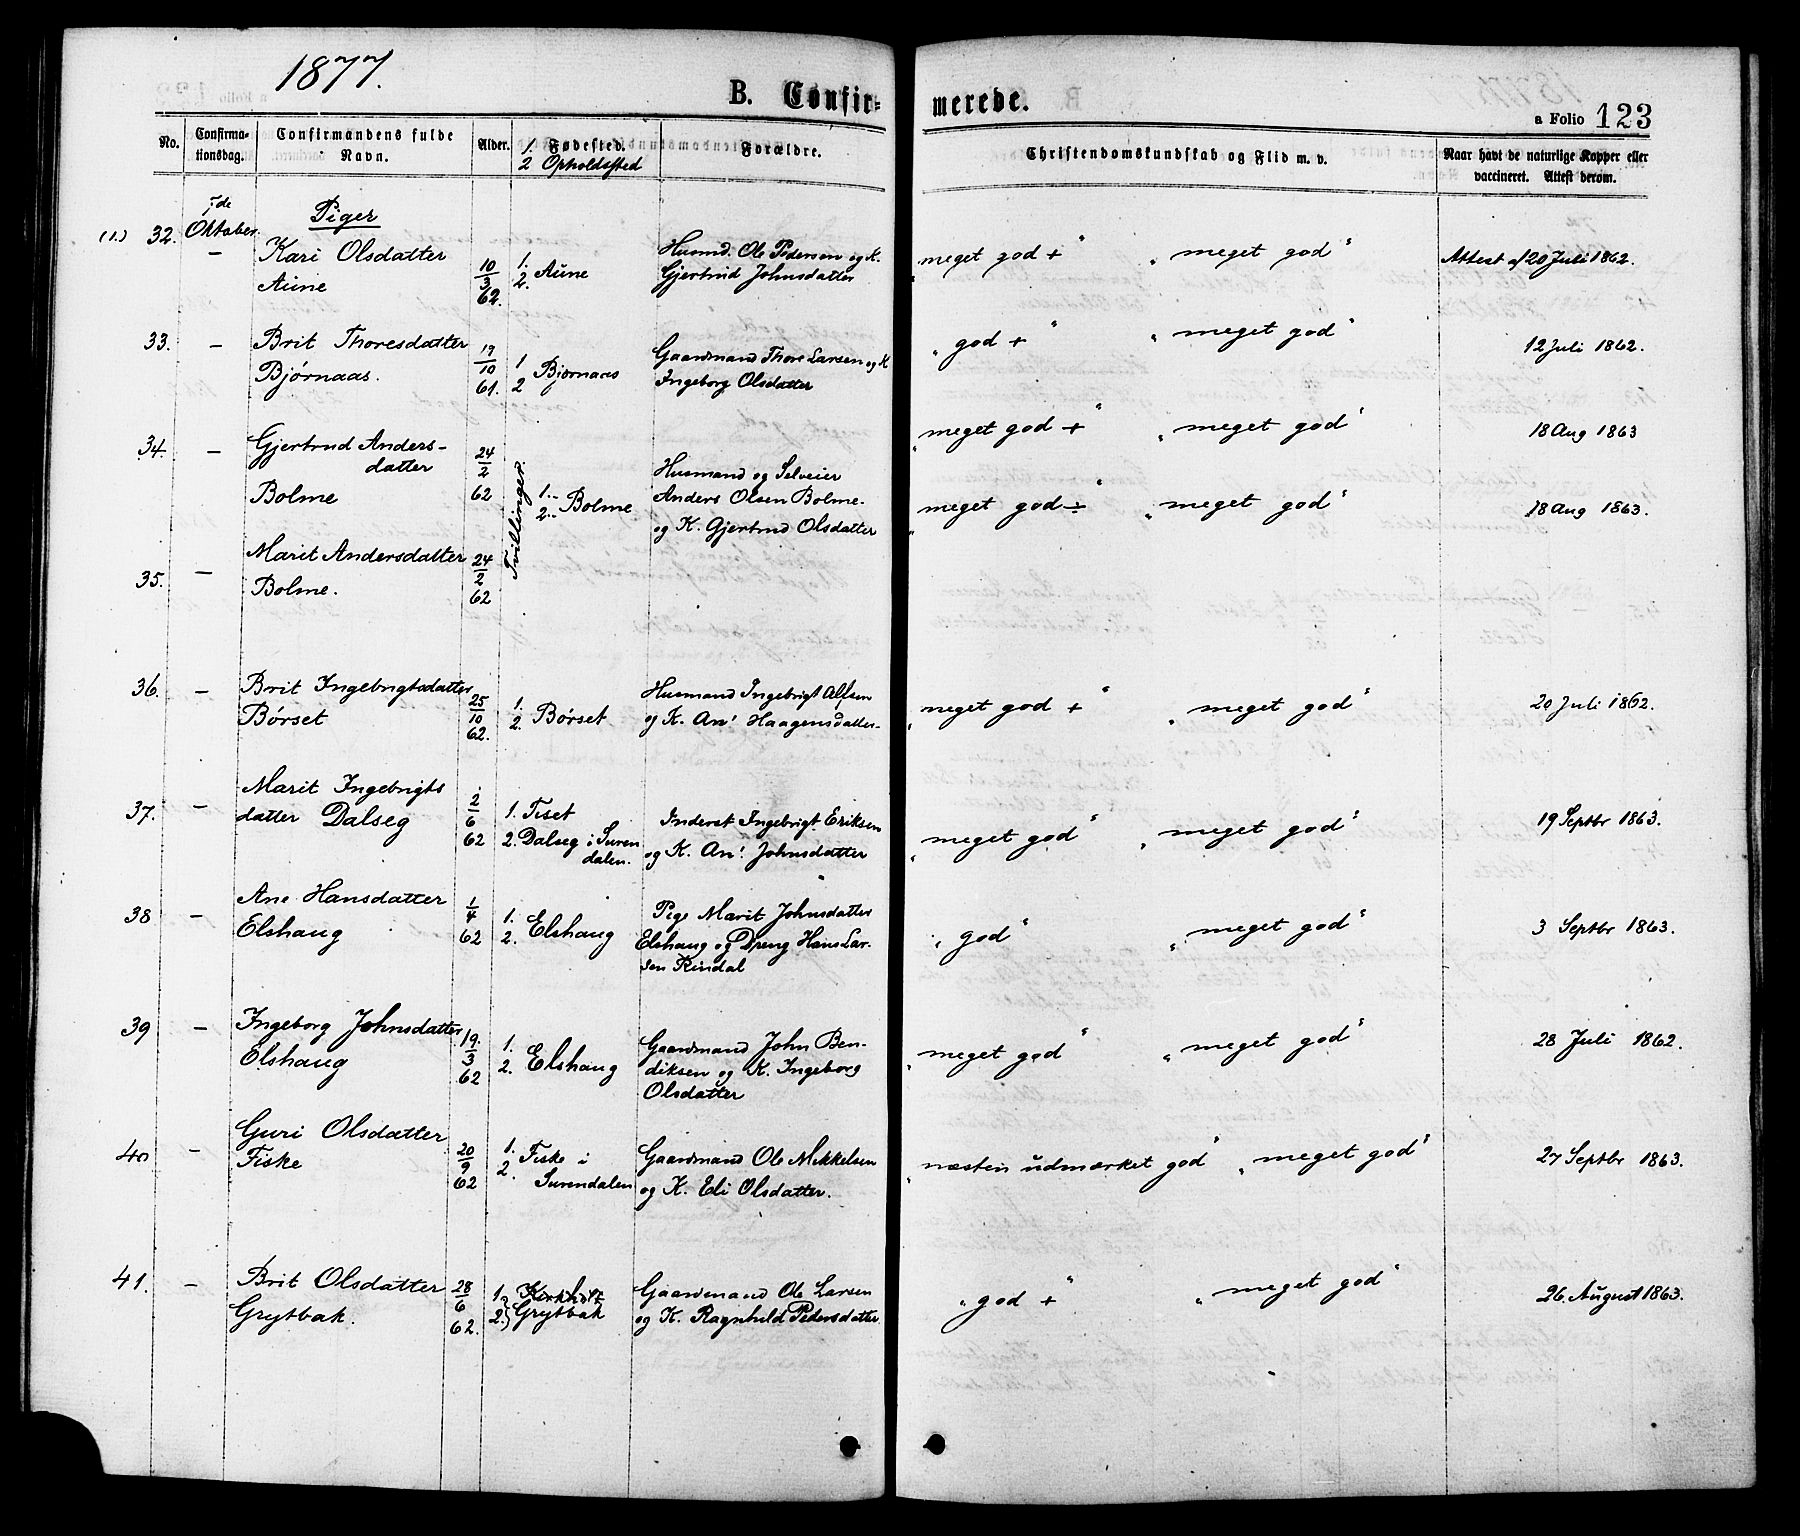 1877.
B. Confir-
merede.
a Folio 123
No.
Confirma-
tionsdag.
Confirmandens fulde
Navn.
Alder.
1. Fødested.
2 Opholdsted
Forældre.
Christendomskundskab og Flid m. v.
Naar havt de naturlige Kopper eller
vaccineret. Attest derom.
7de
Oktober.
Piger
(1.) 32. –
Kari Olsdatter
Aune
10/3 62.
1. 2. Aune
Husmd. Ole Pedersen og K.
Gjertrud Johnsdatter
"meget god +" "meget god"
Attest af 20 Juli 1862.
33. –
Brit Thoresdatter
Bjørnaas.
19/10 61.
1 2 Bjørnaas
Gaardmand Thore Larsen og K
Ingeborg Olsdatter
"god +" "meget god"
12 Juli 1862.
34. –
Gjertrud Anders-
datter
Bolme
24/2 62
Tvillinger.
1.. 2.. Bolme
Husmand og Selveier
Anders Olsen Bolme.
og K. Gjertrud Olsdatter
"meget god +" "meget god"
18 Aug 1863
35. –
Marit Andersdatter
Bolme.
24/2 62
"meget god ÷" "meget god"
18 Aug 1863.
36. –
Brit Ingebrigtsdatter
Børset
25/10 62.
1. 2. Børset
Husmand Ingebrigt Alfsen
og K. Ane Haagensdatter.
"meget god +" "meget god"
20 Juli 1862.
37. –
Marit Ingebrigts
datter Dalseg
2/6 62
1. Tiset
2. Dalseg i Suren
dalen.
Inderst Ingebrigt Eriksen
og K. Ane Johnsdatter
"meget god" "meget god"
19 Septbr 1863.
38 –
Ane Hansdatter
Elshaug
1/4 62
1. 2. Elshaug
Pige Marit Johnsdatter
Elshaug og Dreng Hans Lar-
sen Rindal
"god" "meget god"
3 Septbr 1863.
39 –
Ingeborg Johnsdatter
Elshaug
19/3 62
1. 2. Elshaug
Gaardmand John Ben-
diksen og K. Ingeborg
Olsdatter
"meget god" "meget god"
28 Juli 1862.
40 –
Guri Olsdatter
Fiske
20/9 62
1. 2. Fiske i
Surendalen
Gaardmand Ole Mikkelsen
og K. Eli Olsdatter.
"næsten udmærket god" "meget god"
27 Septbr 1863.
41. –
Brit Olsdatter
Grytbak.
28/6 62.
1. 2. Grytbak
Gaardmand Ole Larsen
og K. Ragnhild Pedersdatter.
"god +" "meget god"
26. August 1863.